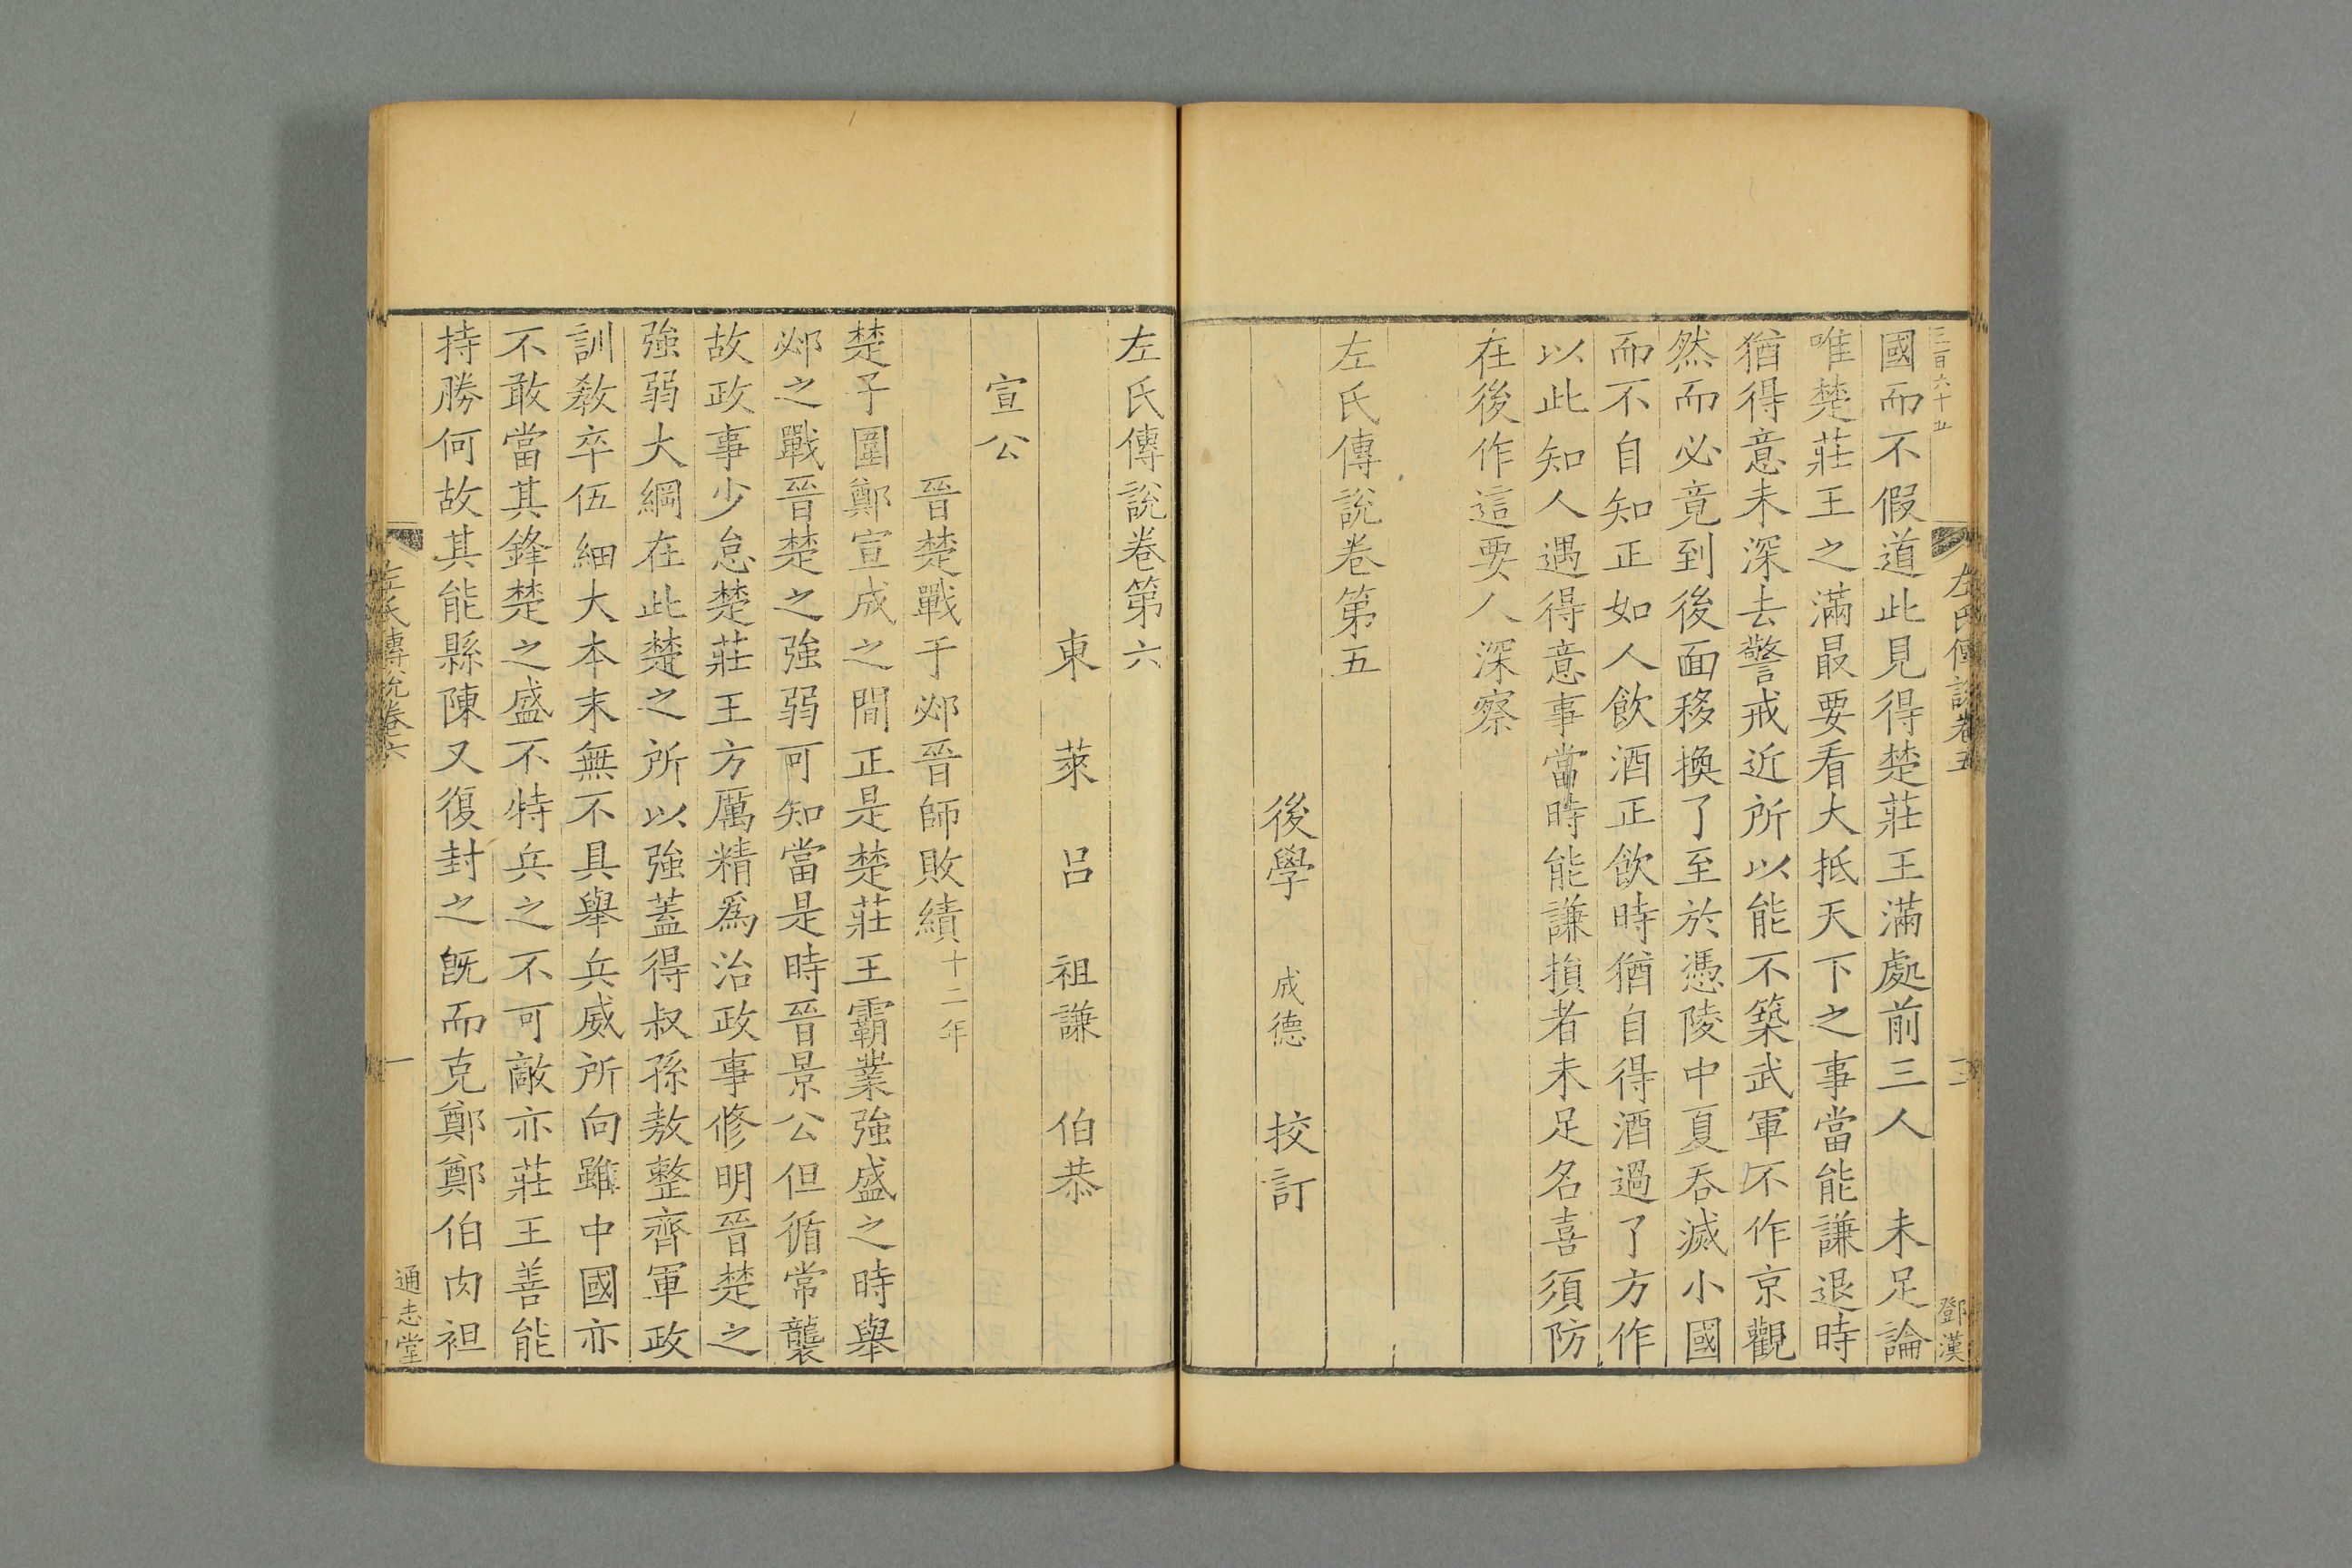 三百六十五
左氏傳說卷五
十二
鄧漢
國而不假道此見得楚莊王滿處前三人 未足論
唯楚莊王之滿最要看大抵天下之事當能謙退時
猶得意未深去警戒近所以能不築武軍不作京觀
然而必竟到後面移換了至於憑陵中夏吞滅小國
而不自知正如人飲酒正飲時猶自得酒過了方作
以此知人遇得意事當時能謙損者未足名喜須防
在後作這要人深察
左氏傳說卷第五
後學 成德 挍訂
左氏傳說卷第六
東萊呂祖謙伯恭
宣公
晉楚戰于邲晉師敗績十二年
楚子圍鄭宣成之間正是楚莊王霸業強盛之時舉
邲之戰晉楚之強弱可知當是時晉景公但循常襲
故政事少怠楚莊王方厲精為治政事修明晉楚之
強弱大綱在此楚之所以強蓋得叔孫敖整齊軍政
訓敎卒伍細大本末無不具舉兵威所向雖中國亦
不敢當其鋒楚之盛不特兵之不可敵亦莊王善能
持勝何故其能縣陳又復封之旣而克鄭鄭伯肉袒
左氏傳說卷六
一
通志堂